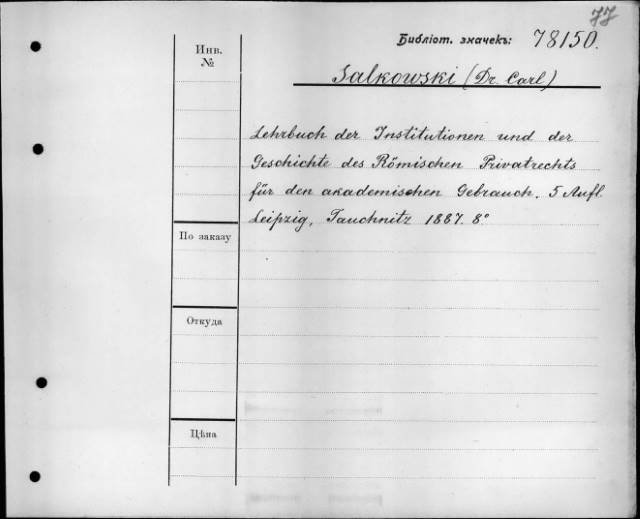 77
Библіот. значекъ: 78150.
Инв.
№
Salkowski (Dr. Carl)
Lehrbuch der Institutionen und der
Geschichte des Römischen Privatrechts
für den akademischen Gebrauch. 5 Aufl.
Leipzig, Tauchnitz 1887. 8°
По заказу
Откуда
Цѣна